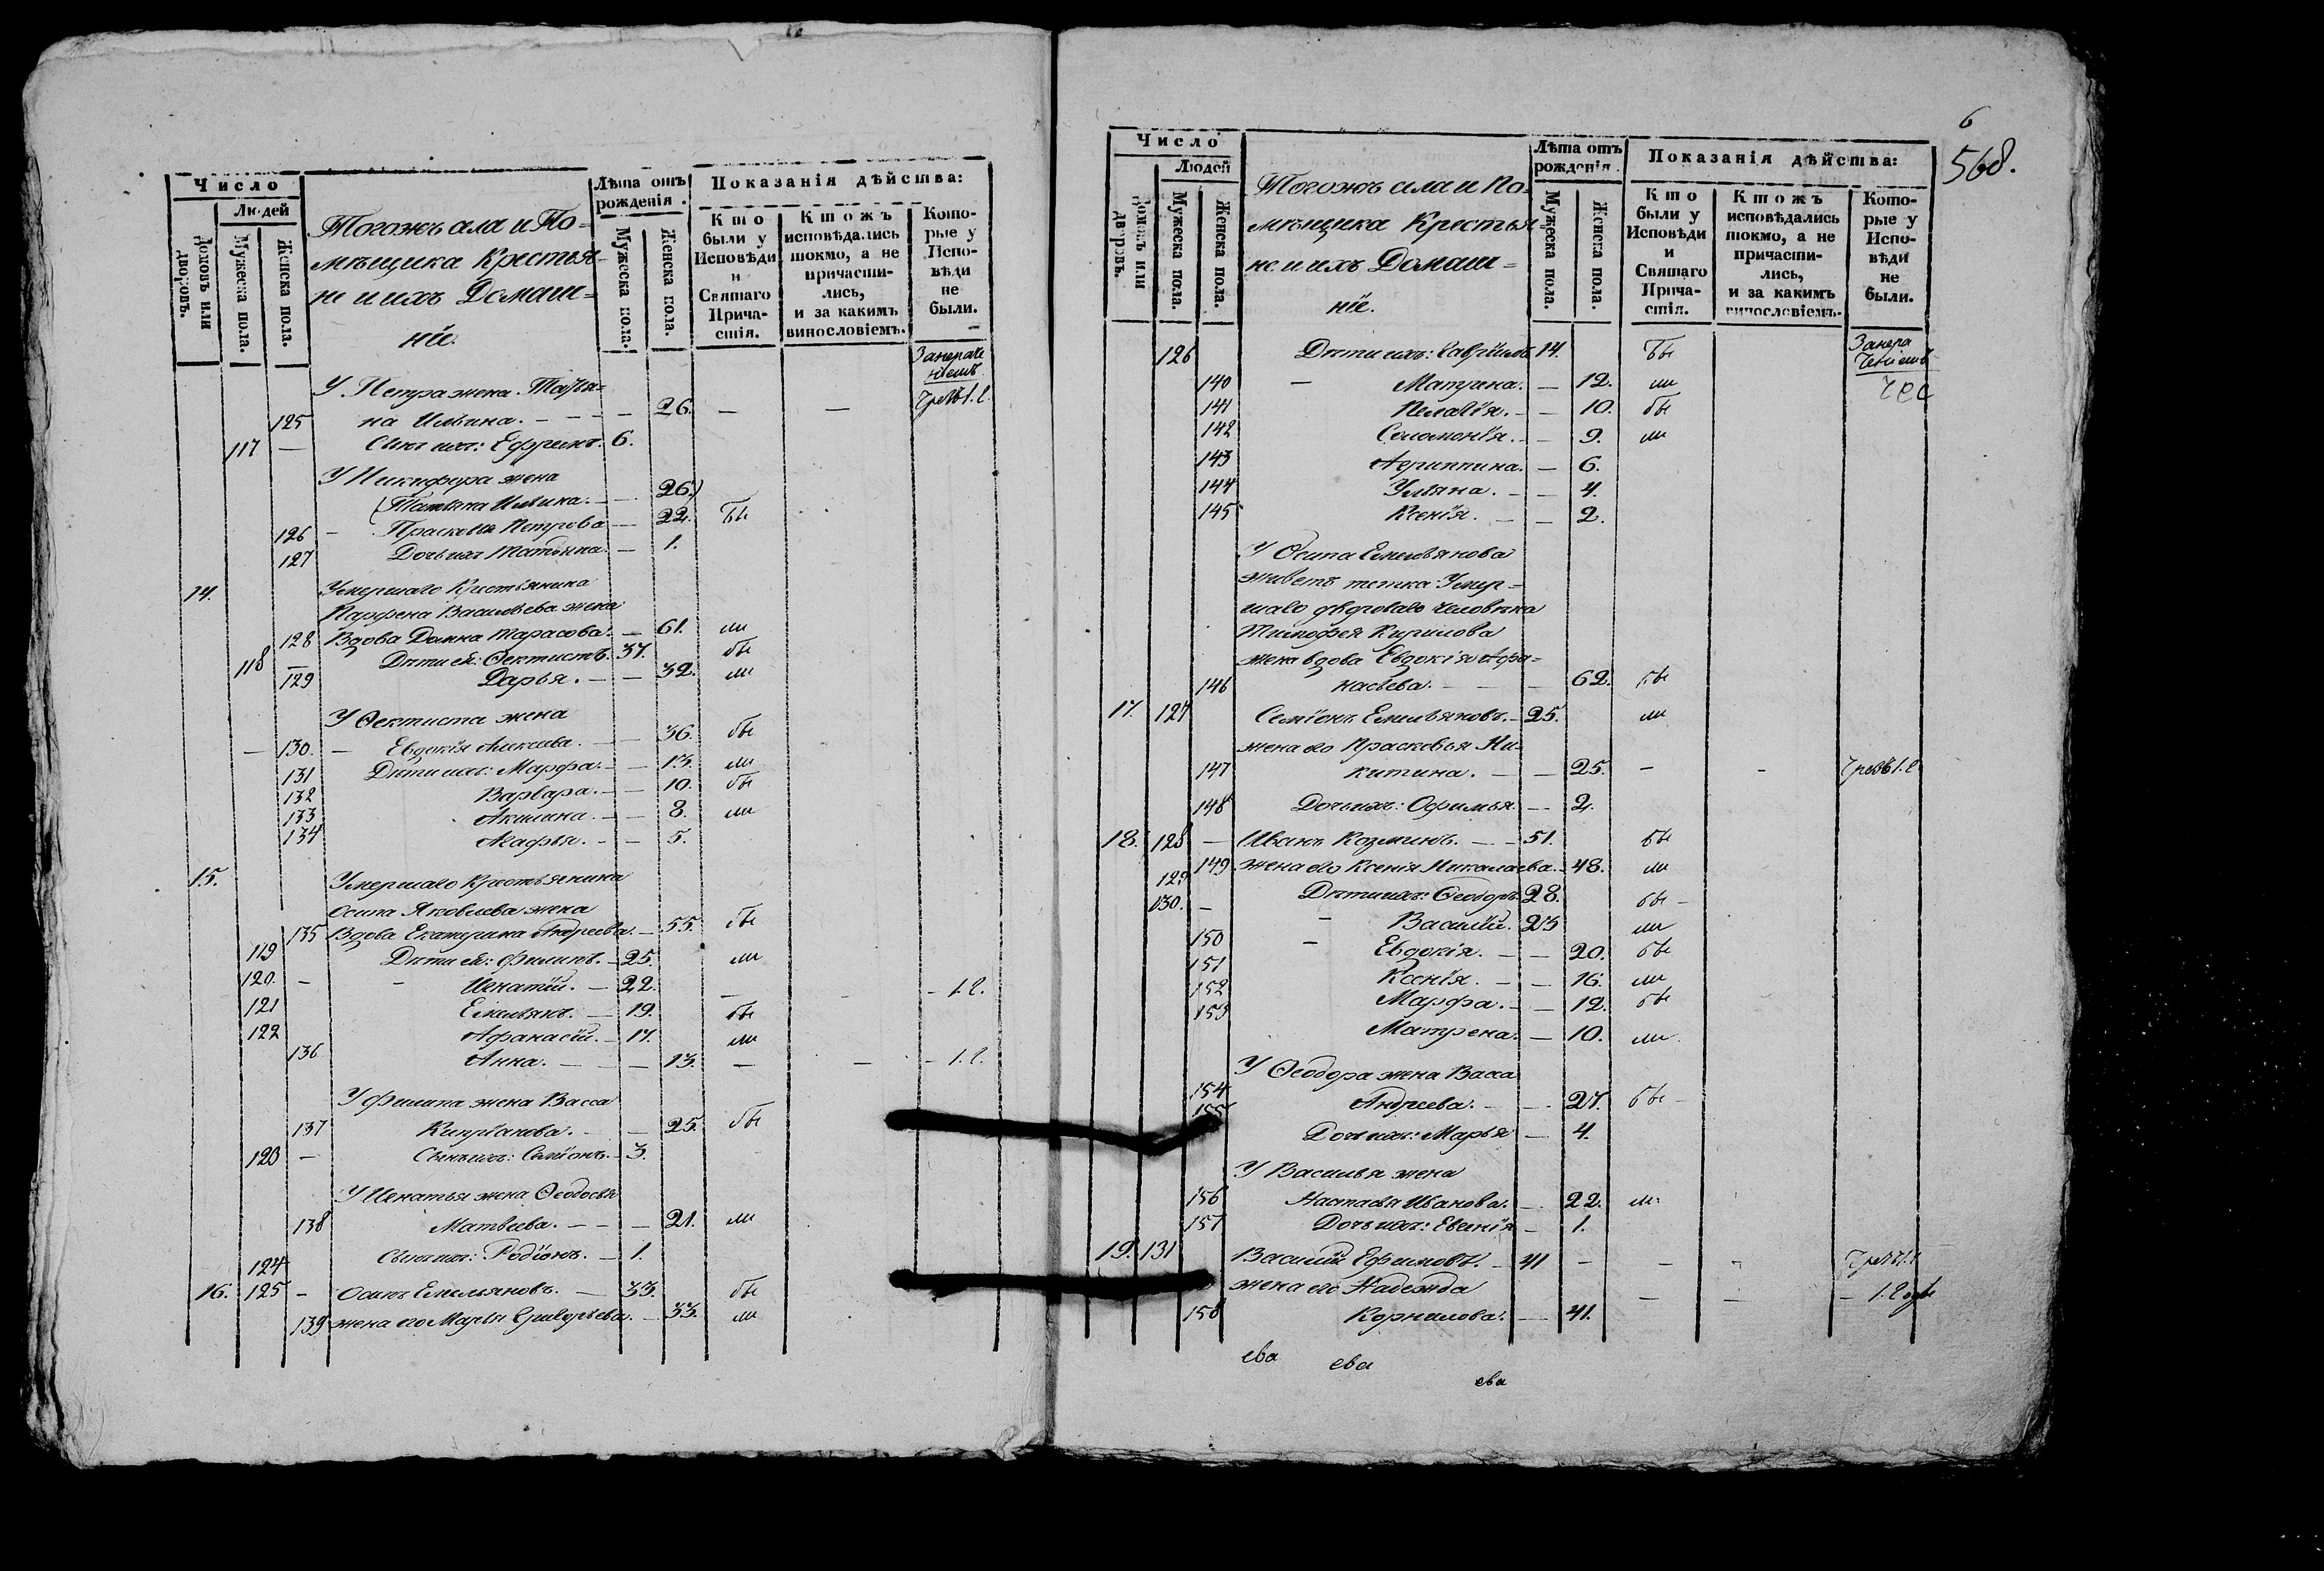 Число
Людей
Домовъ или дворовъ.
Мужеска пола.
Женска пола.
Тогожъ села и По=
мѣщика Крестья=
не и ихъ Домаш=
ніе.
Лѣта отъ рожденія.
Мужеска пола.
Женска пола.
Показанія дѣйства:
Кто были у Исповѣди и Святаго Причастія.
Ктожъ исповѣдались токмо, а не причастились, и за какимъ винословіемъ.
Которые у Исповѣди не были.
У Петра жена Татья=
125 на Ильина. — 26. — —
117 — Сынъ ихъ: Ефремъ. 6.
У Никифора жена
(Татьяна Ильина. — 26.)
126 — Прасковья Петрова — 22. бы
127 Дочь ихъ Татьяна. — 1.
14. Умершаго Крестьянина
Парфена Васильева жена
128 Вдова Домна Тарасова. — 61. ли
118 — Дѣти ей: Ѳектистъ. 37. бы
129 Дарья. — 32. ли
У Ѳектиста жена
130. — Евдокія Алексеева. — 36. бы
131 Дѣти ихъ: Марфа. — 13. ли
132 Варвара. — 10. бы
133 Акилина. — 8. ли
134 Агафья. — 5.
15. Умершаго Крестьянина
Осипа Яковлева жена
135 Вдова Екатерина Андреева. — 55. бы
119 Дѣти ей: Филипъ. — 25. ли
120. — Игнатій. — 22. — — — 1. г.
121 Емельянъ. — 19. бы
122 Афанасій. — 17. ли
136 Анна. — 13. — — — 1. г.
У Филипа жена Васса
137 Кипріанова. — 25. бы
123 — Сынъ ихъ: Семіонъ. 3.
У Игнатья жена Ѳеодосья
138 Матвеева. — 21. ли
124 Сынъ ихъ: Родіонъ. — 1.
16. 125 — Осипъ Емельяновъ. — 33. бы
139 жена его Марья Григорьева. — 33. ли
6
568.
Число
Людей
Домовъ или дворовъ.
Мужеска пола.
Женска пола.
Тогожъ села и По=
мѣщика Крестья=
не и ихъ Домаш=
ніе.
Лѣта отъ рожденія.
Мужеска пола.
Женска пола.
Показанія дѣйства:
Кто были у Исповѣди и Святаго Причастія.
Ктожъ исповѣдались токмо, а не причастились, и за какимъ винословіемъ.
Которые у Исповѣди не были.
126 Дѣти ихъ: Гавріилъ 14. бы
140 — Матрина. — 12. ли
141 Пелагія. — 10. бы
142 Соломонія. — 9. ли
143 Агрипина. — 6.
144 Ульяна. — 4.
145 Ксенія. — 2.
У Осипа Емельянова
живетъ тетка Умер=
шаго двороваго человѣка
Тимофея Кирилова
жена вдова Евдокія Афа=
146 насьева. — 62. бы
17. 127 Семіонъ Емельяновъ. — 25. ли
жена его Прасковья Ни=
147 китина. — 25. — —
148 Дочь ихъ: Офимья. — 2.
18. 128 — Иванъ Козминъ. — 51. бы
149 жена его Ксенія Николаева. 48. ли
129 Дѣти ихъ: Ѳеодоръ. 28. бы
130. — Василій. 23 ли
150 Евдокія. — 20. бы
151 Ксенія. — 16. ли
152 Марфа. — 12. бы
153 Матрена. — 10. ли
У Ѳеодора жена Васса
154 Андреева. — 27. бы
155 Дочь ихъ: Марья — 4.
У Василья жена
156 Настасья Иванова. — 22. ли
157 Дочь ихъ: Евгенія — 1.
19. 131 Василій Ефимовъ. 41 — — —
жена его Надежда
158 Корнилова. — 41. — — — 1. г.
ева ева
ева